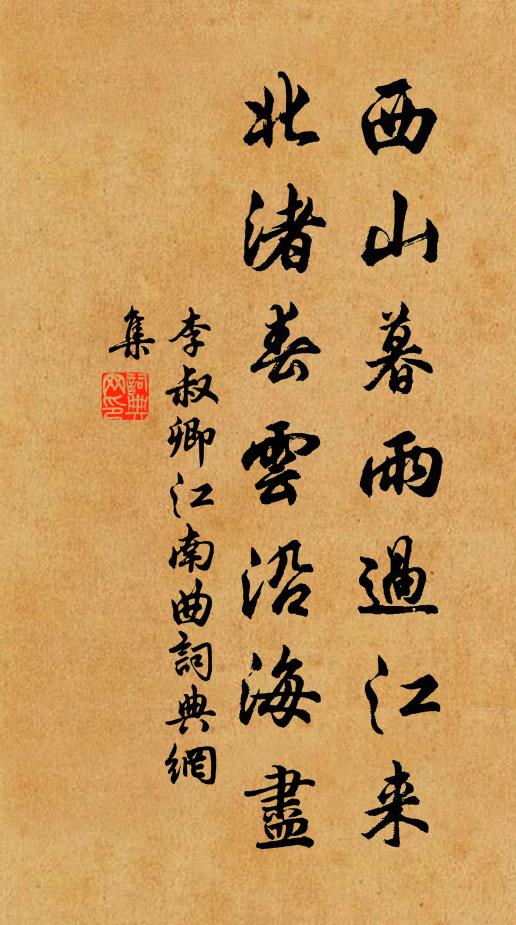 西山暮雨過江来
北渚春雲沿海盡
李叔卿江南曲詞典網
集
詞典
网印